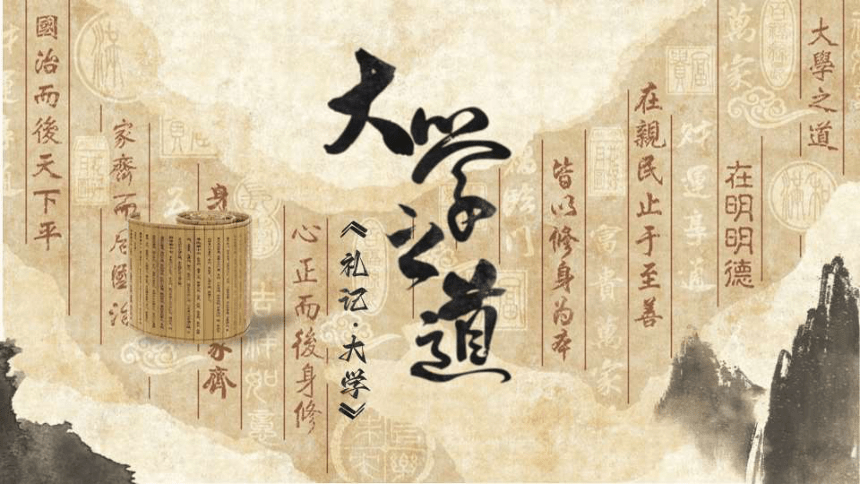 大學之道
在明明德
萬家
財運亨通
在親民止于至善
富貴萬家
皆以修身為本
臨門
大学之道
《礼记·大学》
心正而後身修
吉祥如意
身
家齊
家齊而后國治
國治而後天下平